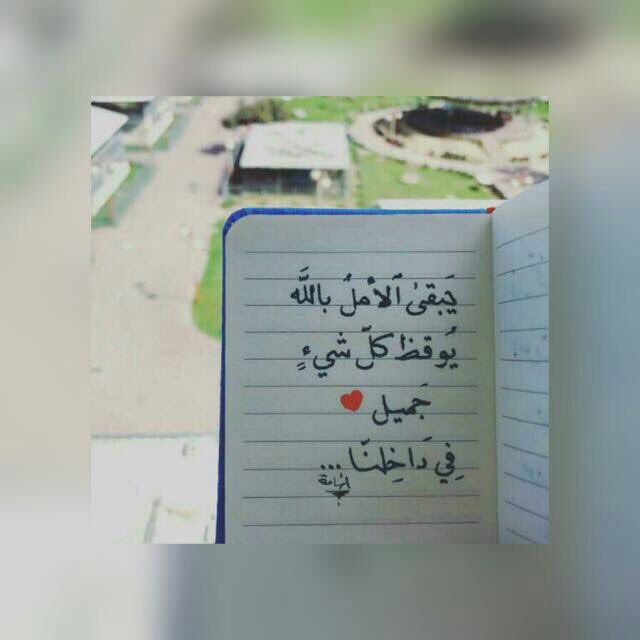 يَبقىٰ ٱلأملُ باللَّه
يُوقظُ كلّ شيءٍ
جَميل ♥
فِي دَاخِلنّا ...